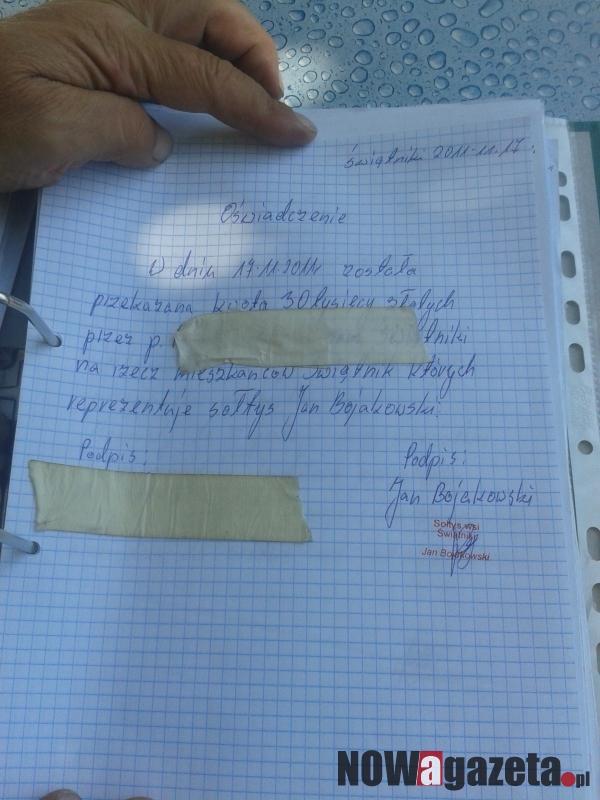 Świątniki 2011-11.17.
Oświadczenie
W dniu 17.11.2011r została
przekazana kwota 30 tysięcy złotych
przez p.
na rzecz mieszkańców Świątnik których
reprezentuje sołtys Jan Bojakowski.
Podpis: Podpis:
Jan Bojakowski
Sołtys wsi
Świątniki
Jan Bojakowski
NOWagazeta.pl